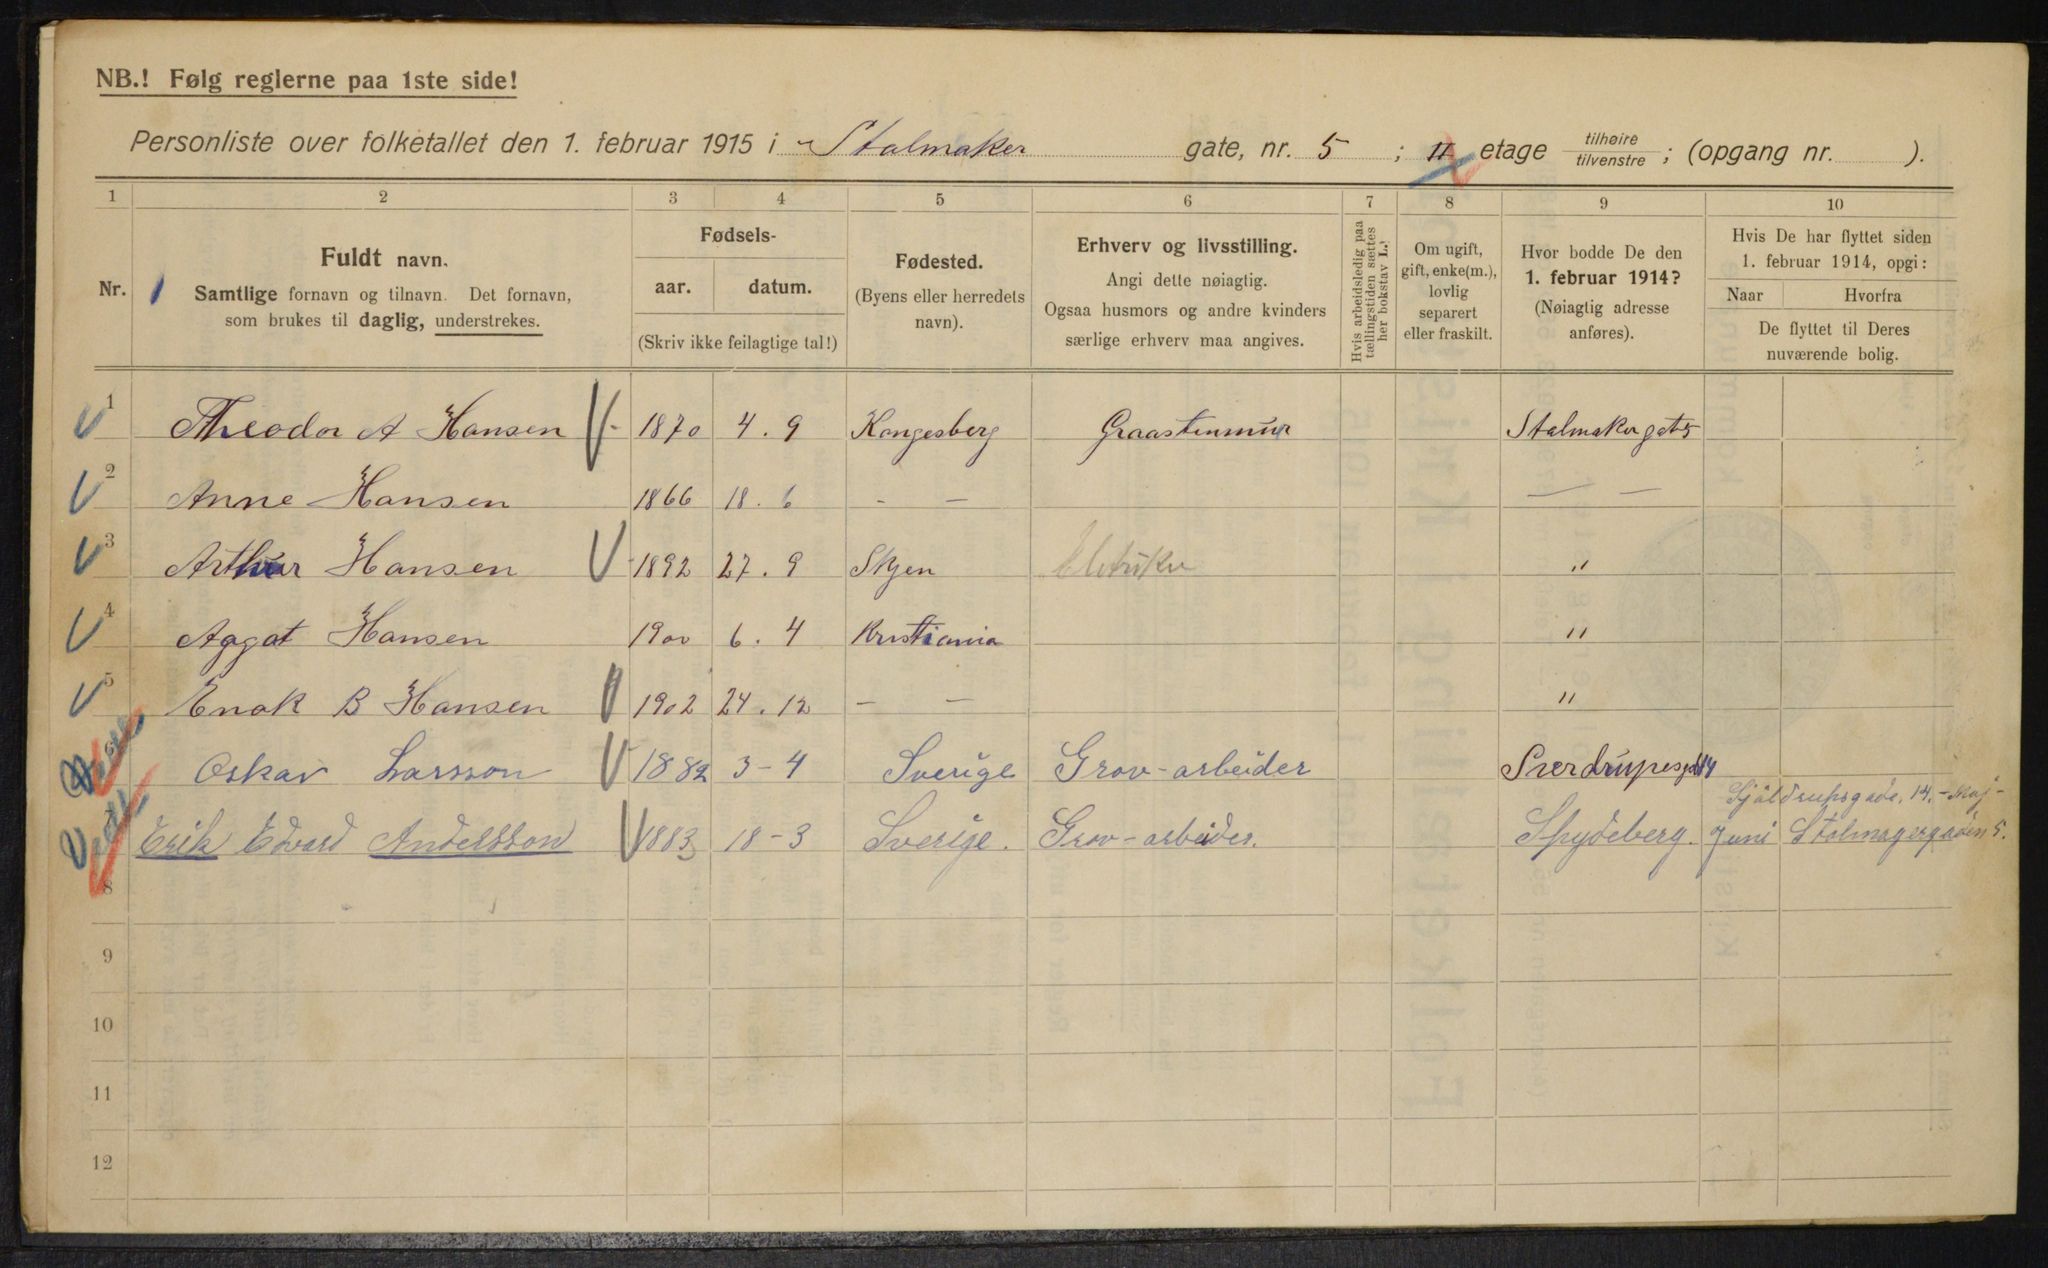 NB.! Følg reglerne paa 1ste side!
Personliste over folketallet den 1. februar 1915 i Stalmaker gate, nr. 5 ; II etage tilhøire tilvenstre ; (opgang nr. ).
1 2 3 4 5 6 7 8 9 10
Nr. 1
Fuldt navn.
Samtlige fornavn og tilnavn. Det fornavn,
som brukes til daglig, understrekes.
Fødsels-
aar. datum.
(Skriv ikke feilagtige tal!)
Fødested.
(Byens eller herredets
navn).
Erhverv og livsstilling.
Angi dette nøiagtig.
Ogsaa husmors og andre kvinders
særlige erhverv maa angives.
Hvis arbeidsledig paa
tællingstiden sættes
her bokstav L.
Om ugift,
gift, enke(m.),
lovlig
separert
eller fraskilt.
Hvor bodde De den
1. februar 1914?
(Nøiagtig adresse
anføres).
Hvis De har flyttet siden
1. februar 1914, opgi:
Naar Hvorfra
De flyttet til Deres
nuværende bolig.
1 Theodor A Hansen 1870 4 . 9 Kongesberg Graastenmur Stalmaker gat 5
2 Anne Hansen 1866 18 . 6 - - - -
3 Arthur Hansen 1892 27 . 9 Skjen "
4 Aggot Hansen 1900 6 . 4 Kristiania "
5 Enok B Hansen 1902 24 . 12 - - "
6 Oskar Larsson 1882 3 - 4 Sverige Grov-arbeider Sverdrupesgd 14
14. - Maj -
7 Erik Edvard Andersson 1883 18 - 3 Sverige. Grov-arbeider. Spydeberg. Juni Stalmagergaden 5.
8
9
10
11
12